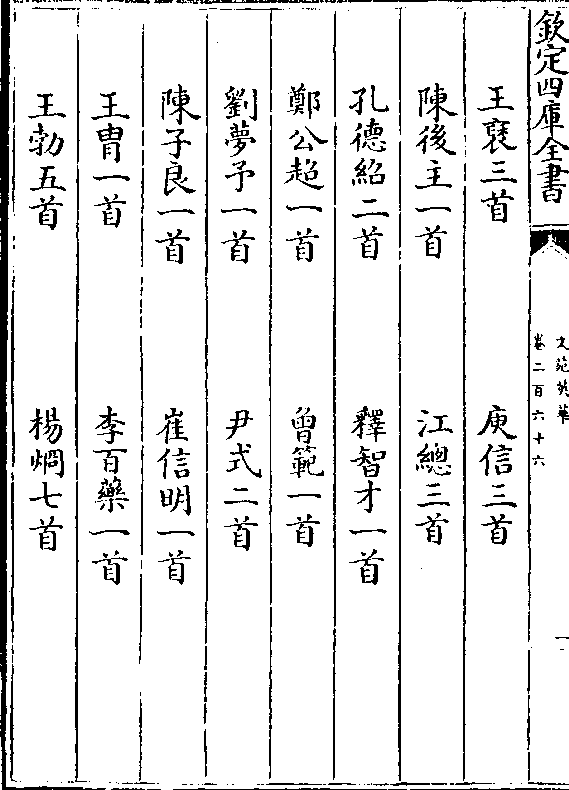 欽定四庫全書
文苑英華
卷二百六十六
一
王襃三首 庾信三首
陳後主一首 江總三首
孔德紹二首 釋智才一首
鄭公超一首 曾範一首
劉夢予一首 尹式二首
陳子良一首 崔信明一首
王胄一首 李百藥一首
王勃五首 楊烱七首